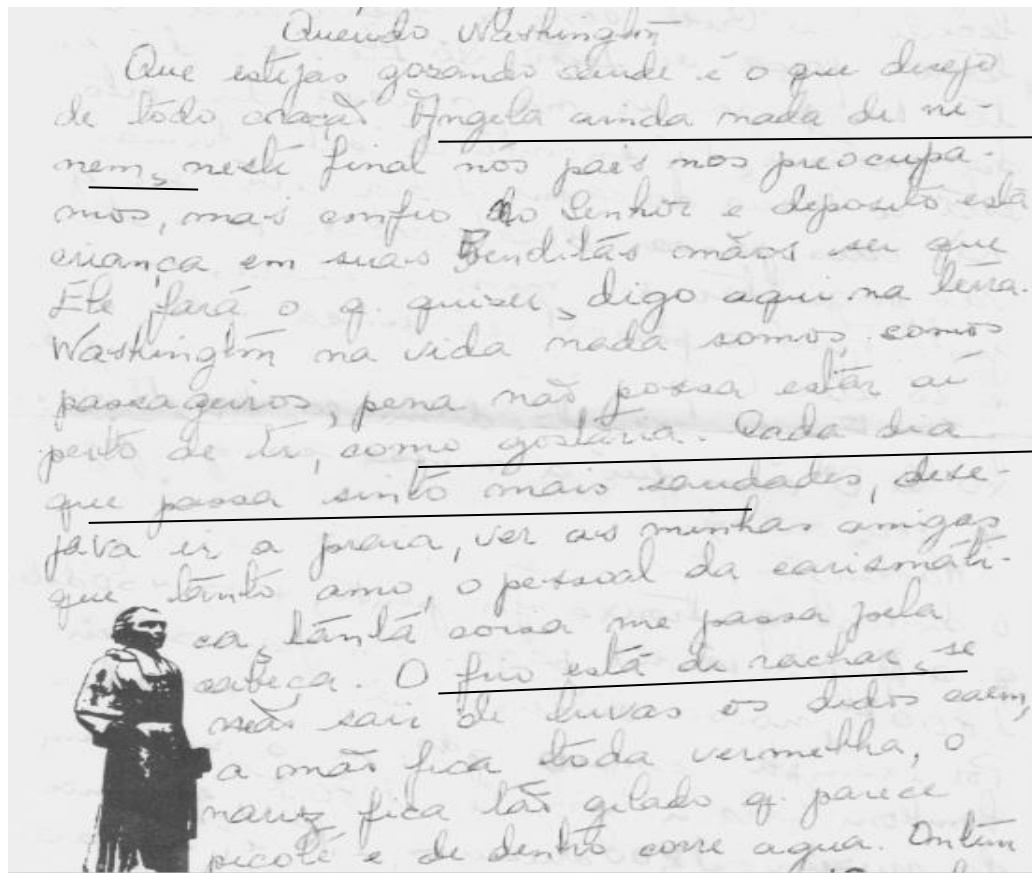 Querido Washington
Que estejas gozando saúde é o que desejo
de tôdo coração Angela ainda nada de ne-
nem, neste final nós pais nos preocupa-
mos, mas confio no Senhor e deposito esta
criança em suas Benditas mãos sei que
Ele fará o q. quizer, digo aqui na terra.
Washington na vida nada somos, somos
passageiros, pena não possa estar aí
perto de ti, como gostaria. Cada dia
que passa sinto mais saudades, dese-
java ir a praia, ver as minhas amigas
que tanto amo, o pessoal da carismáti-
ca, tanta coisa me passa pela
cabeça. O frio está de rachar, se
não sair de luvas os dedos caem,
a mão fica toda vermelha, o
nariz fica tão gelado q. parece
picolé e de dentro corre agua. Ontem